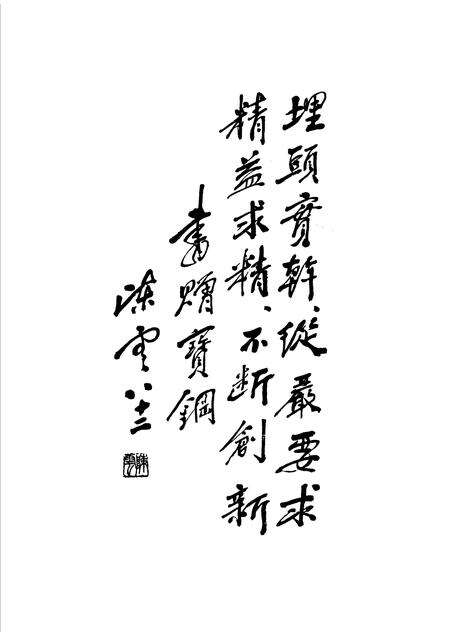 埋頭實幹、從嚴要求
精益求精、不断創新
書贈寶鋼
陳雲八十二
陳雲